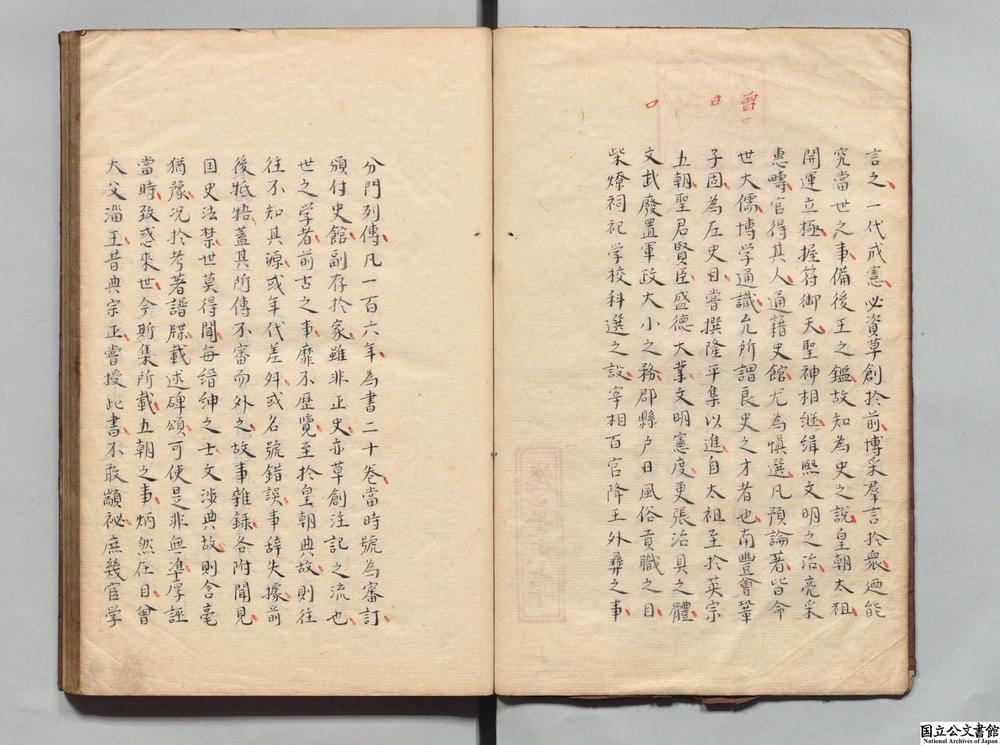 言之一代成憲必資草創於前博采羣言於衆廼能
究當世之事備後王之鑑故知為史之說皇朝太祖
開運立極握符御天聖神相継緝熙文明之治亮采
惠疇官得其人通籍史館尤為慎選凡預論著皆命
世大儒博学通識允所謂良史之才者也南豐會鞏
子固為左史日嘗撰隆平集以進自太祖至於英宗
五朝聖君賢臣盛德大業文明憲度更張治具之體
文武廢置軍政大小之務郡縣户日風俗貢職之目
柴燎祠祀学校科選之設宰相百官降王外彝之事
曾
日
口
分門列傳凡一百六年為書二十卷當時號為審訂
頒付史館副存於家雖非正史亦草創注記之流也
世之学者前古之事靡不歷覽至於皇朝典故則往
往不知其源或年代差舛或名號錯誤事辞失據前
後牴牾蓋其所傳不審而外之故事雜録各附聞見
国史法禁世莫得聞每缙紳之士文渉典故則含毫
猶豫况於考著譜牒載述碑頌可使是非無凖厚誣
當時致惑來世今斯集所載五朝之事炳然在目曾
大父淄王昔典宗正嘗授此書不敢顓祕庶幾官学
国立公文書館
National Archives of Japan